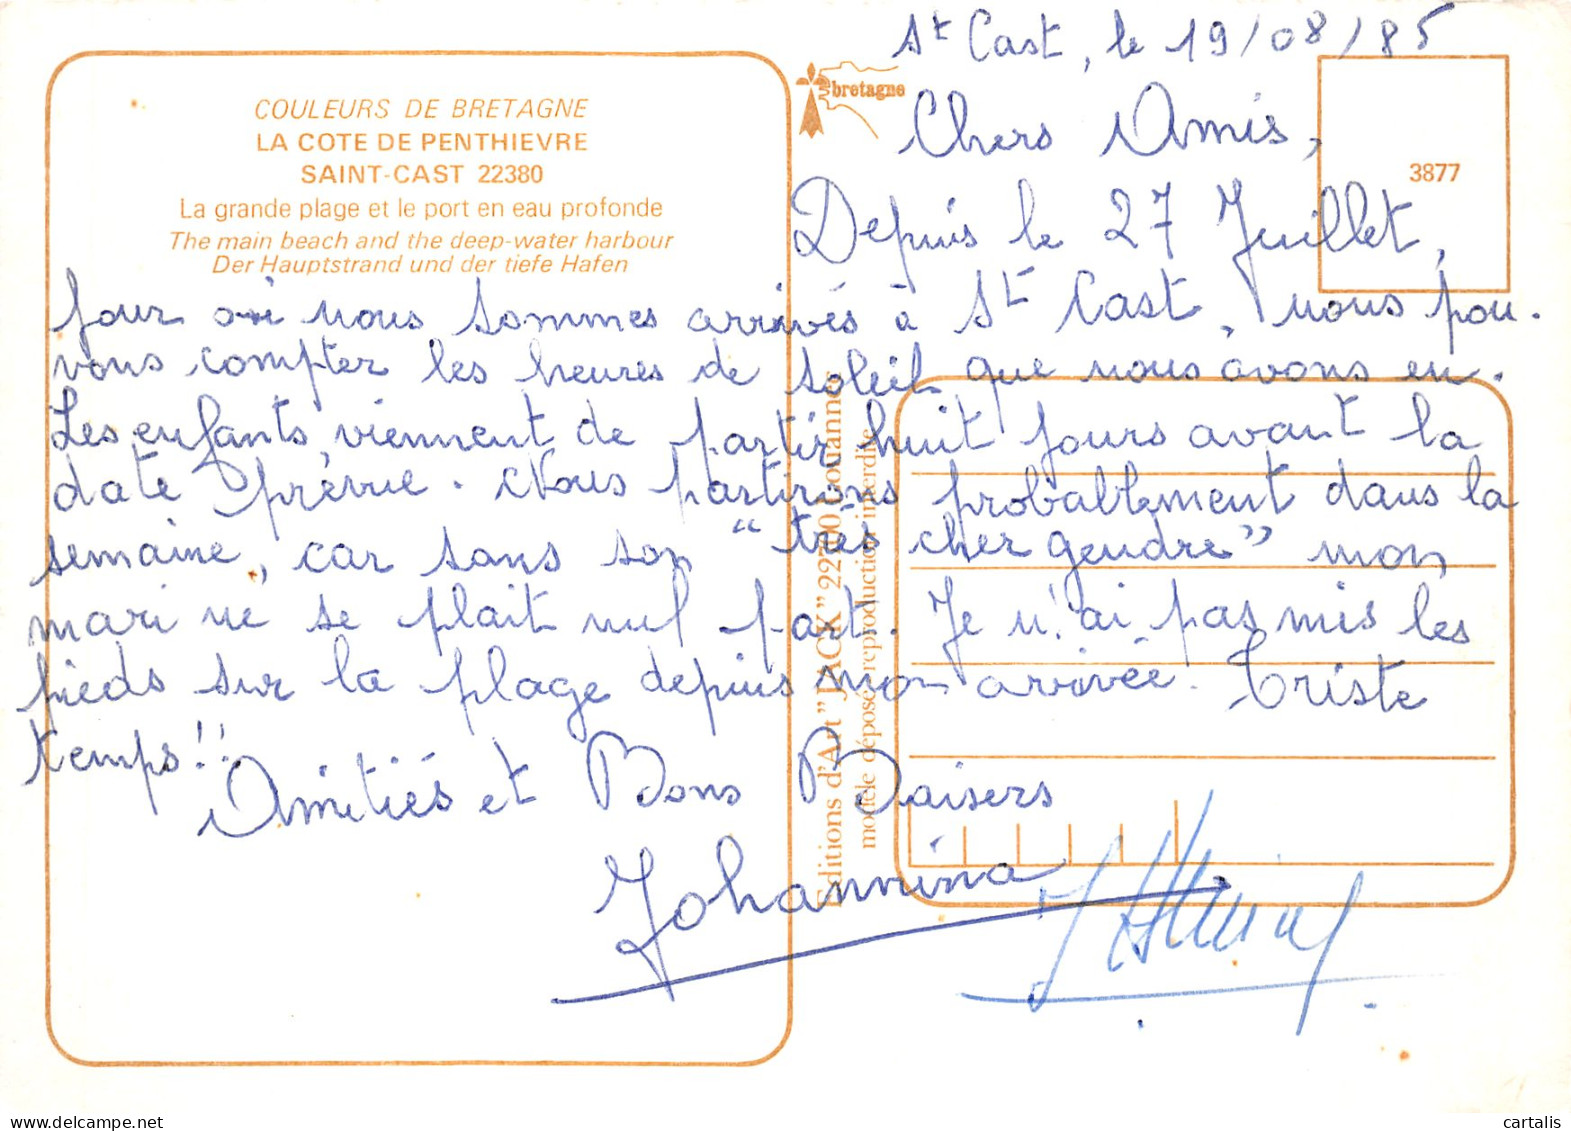 COULEURS DE BRETAGNE
LA COTE DE PENTHIEVRE
SAINT-CAST 22380
La grande plage et le port en eau profonde
The main beach and the deep-water harbour
Der Hauptstrand und der tiefe Hafen
bretagne
3877
Editions d'Art "JACK" 22 Louannec
modèle déposé reproduction interdite
St Cast, le 19/08/85
Chers Amis,
Depuis le 27 Juillet,
jour où nous sommes arrivés à St Cast, nous pou-
vons compter les heures de soleil que nous avons eu.
Les enfants, viennent de partir huit jours avant la
date prévue. Nous partirons probablement dans la
semaine, car sans son "très cher gendre" mon
mari ne se plait nul part. Je n'ai pas mis les
pieds sur la plage depuis mon arrivée. Triste
temps!!
Amitiés et Bons Baisers
Johannina
cartalis